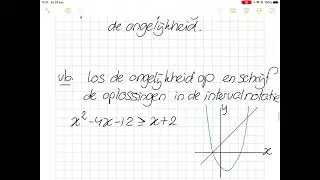 de ongelijkheid.
vb. Los de ongelijkheid op en schrijf
de oplossingen in de intervalnotatie
x²-4x-12 ≥ x+2
y
x